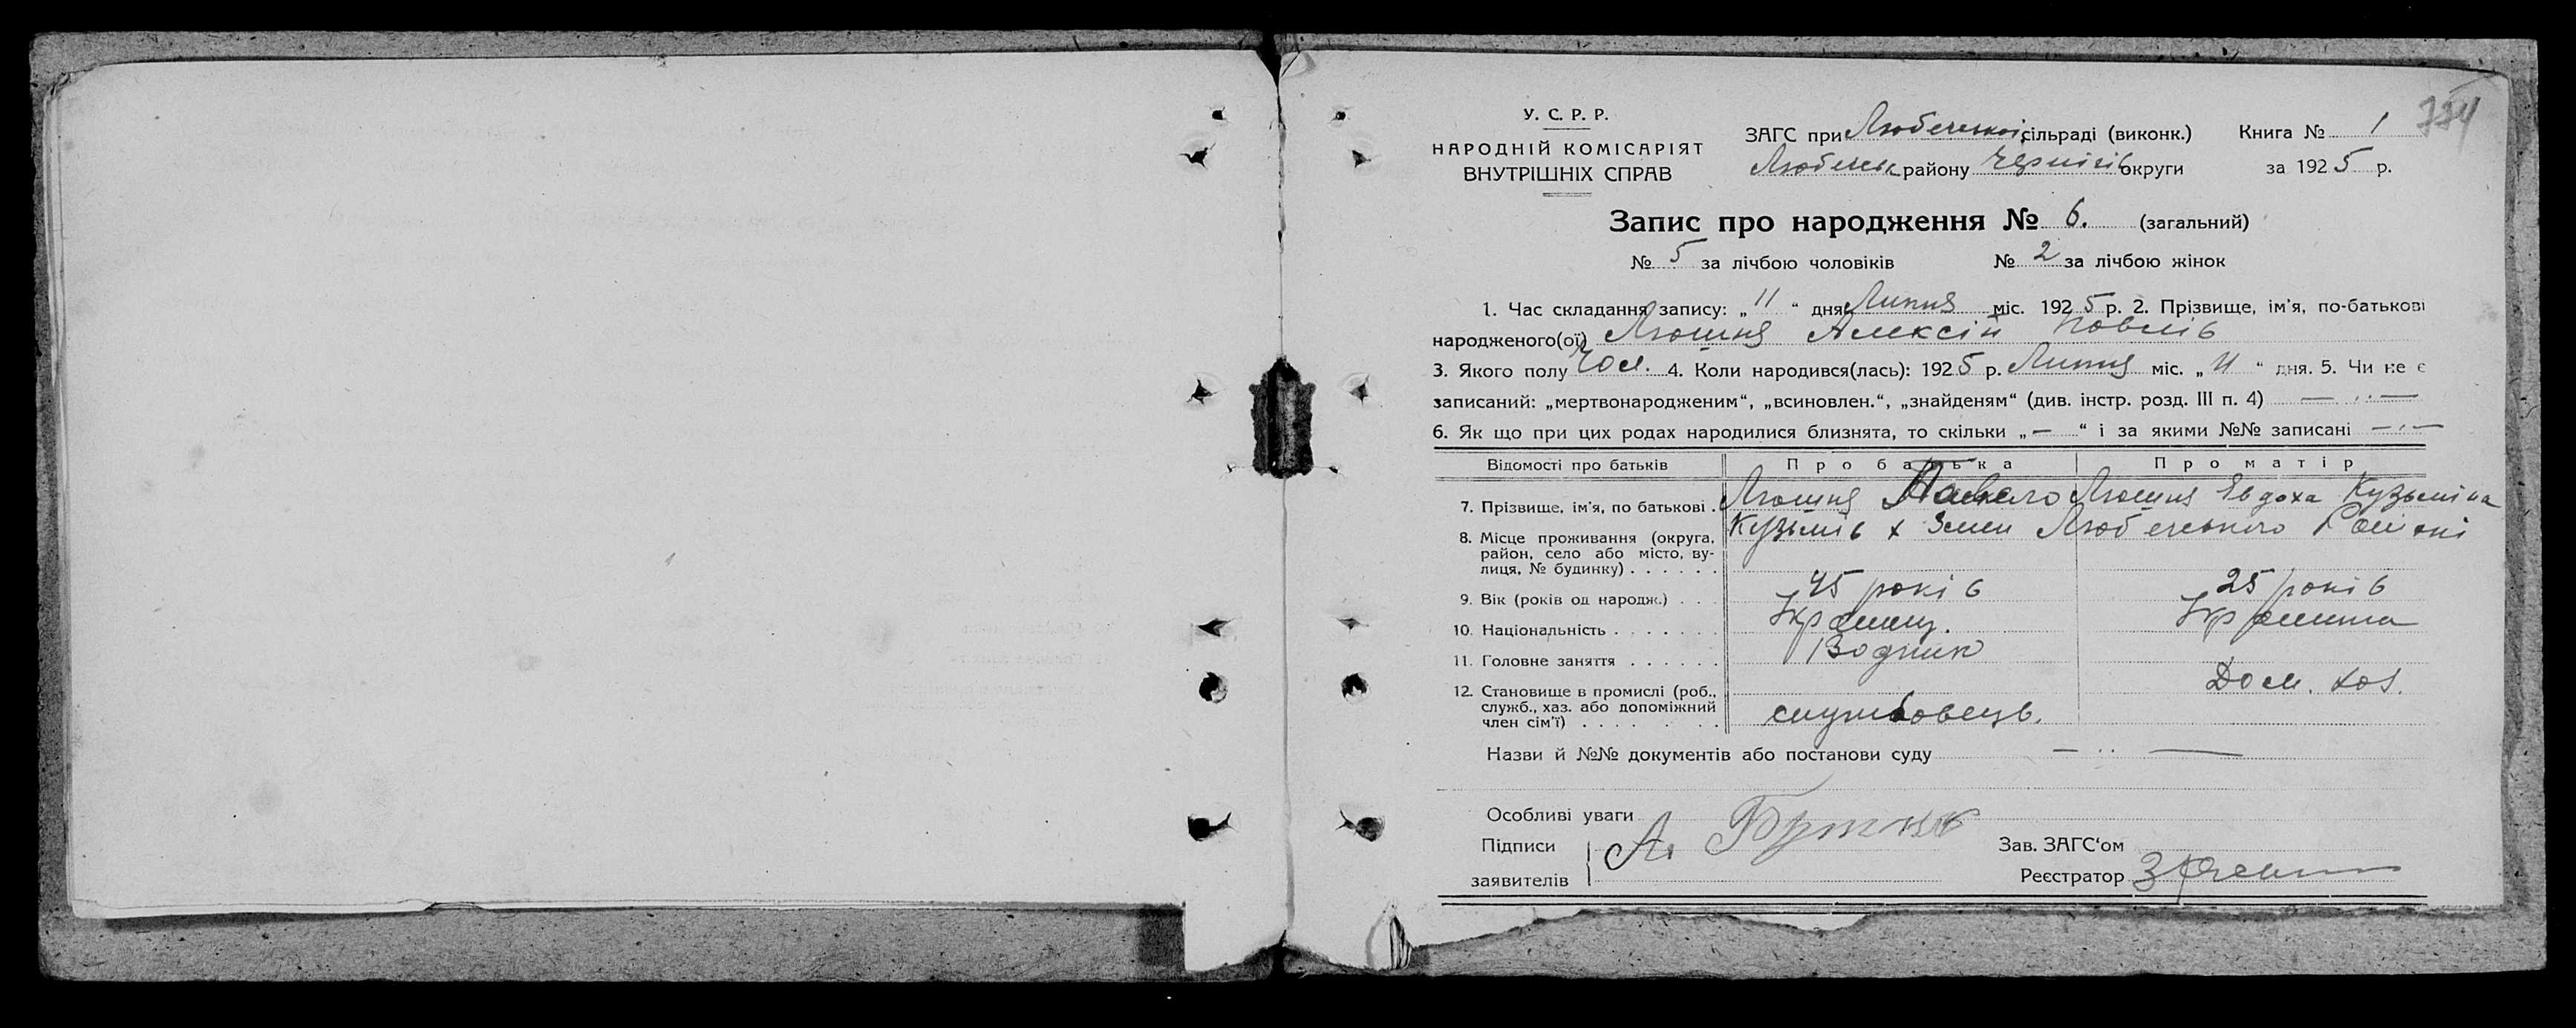 У. С. Р. Р.
НАРОДНІЙ КОМІСАРІЯТ
ВНУТРІШНІХ СПРАВ
ЗАГС при Любецької сільраді (виконк.) Книга № 1
Любецьк району Чернігів округи за 1925 р.
Запис про народження № 6. (загальний)
№ 5 за лічбою чоловіків № 2 за лічбою жінок
1. Час складання запису: „11“ дня Липня міс. 1925 р. 2. Прізвище, ім'я, по-батькові
народженого(ої) Алексій Павлів
3. Якого полу Чол. 4. Коли народився(лась): 1925 р. Липня міс. „11“ дня. 5. Чи не є
записаний: „мертвонародженим“, „всиновлен.“, „знайденям“ (див. інстр. розд. III п. 4) —
6. Як що при цих родах народилися близнята, то скільки „—“ і за якими №№ записані —
Відомості про батьків Про батька Про матір
7. Прізвище, ім'я, по батькові . Павло Євдоха Кузьміна
Кузьмів х Любецького
8. Місце проживання (округа,
район, село або місто, ву-
лиця, № будинку) . . . . . .
9. Вік (років од народж.) . . . 45 років 25 років
10. Національність . . . . . . . Українц. Українка
11. Головне заняття . . . . . . Водник
Дом. хоз.
12. Становище в промислі (роб.,
служб., хаз. або допоміжний
член сім'ї) . . . . . . . службовець.
Назви й №№ документів або постанови суду —
Особливі уваги
Підписи
заявителів А.
Зав. ЗАГС'ом
Реєстратор